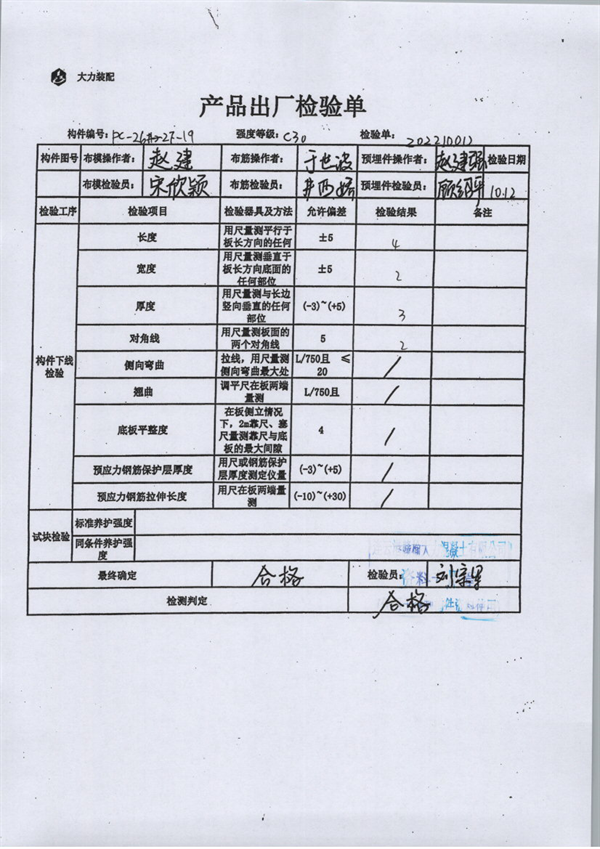 大力装配
产品出厂检验单
构件编号：PC-26#-2F-19 强度等级：C30 检验单：202210012
构件图号 布模操作者： 赵建 布筋操作者： 于世波 预埋件操作者： 赵建强 检验日期
布模检验员： 宋欣颖 布筋检验员： 预埋件检验员： 10.12
检验工序 检验项目 检验器具及方法 允许偏差 检验结果 备注
构件下线检验
长度 用尺量测平行于板长方向的任何 ±5 4
宽度 用尺量测垂直于板长方向底面的任何部位 ±5 2
厚度 用尺量测与长边竖向垂直的任何部位 (-3)~(+5) 3
对角线 用尺量测板面的两个对角线 5 2
侧向弯曲 拉线，用尺量测侧向弯曲最大处 L/750且 ≤20 /
翘曲 调平尺在板两端量测 L/750且 /
底板平整度 在板侧立情况下，2m靠尺、塞尺量测靠尺与底板的最大间隙 4 /
预应力钢筋保护层厚度 用尺或钢筋保护层厚度测定仪量 (-3)~(+5) /
预应力钢筋拉伸长度 用尺在板两端量测 (-10)~(+30) /
试块检验 标准养护强度
同条件养护强度
最终确定 合格 检验员：
检测判定 合格